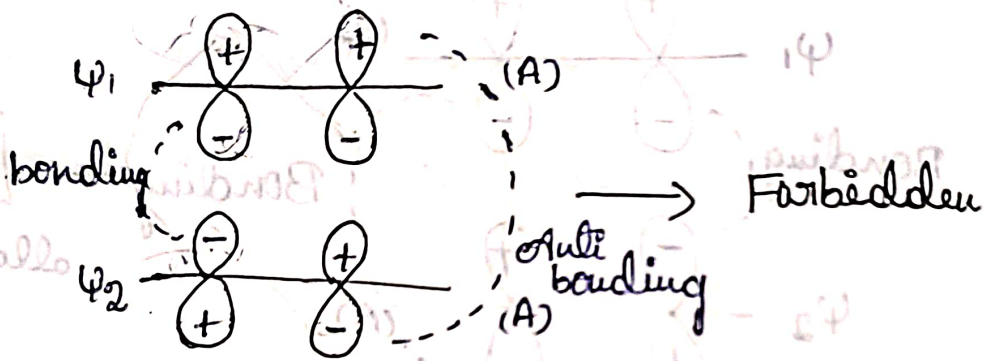 ψ₁ + + (A)
- -
bonding
Farbidden
- +
Anti
bonding
ψ₂
+ - (A)